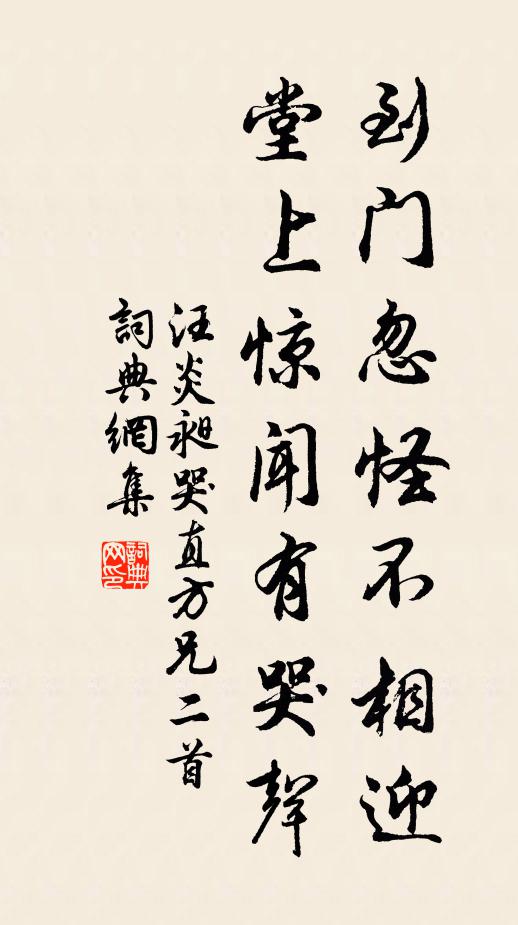 到门忽怪不相迎
堂上惊闻有哭聲
汪炎昶哭直方兄二首
詞典網集
詞典网印